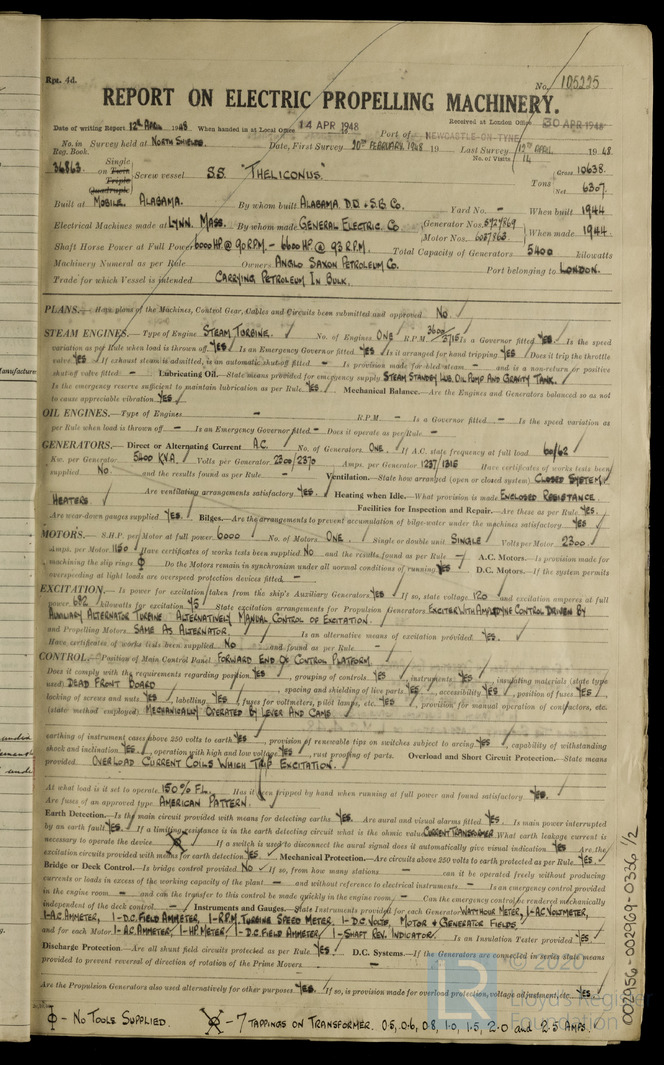 Rpt. 4d.
No. 105225
REPORT ON ELECTRIC PROPELLING MACHINERY.
Received at London Office 30 APR 1948
Date of writing Report 12th April 1948 When handed in at Local Office 14 APR 1948 Port of NEWCASTLE-ON-TYNE
No. in Reg. Book. Survey held at North Shields. Date, First Survey 20th February, 1948 Last Survey 12th April 1948.
No. of Visits 14
36863 Single on Twin Triple Quadruple Screw vessel S.S. "Theliconus" Tons Gross 10638. Net 6307.
Built at Mobile, Alabama. By whom built Alabama D.D. & S.B. Co Yard No. - When built 1944
Electrical Machines made at Lynn, Mass. By whom made General Electric Co Generator Nos. 6727869 When made 1944
Motor Nos. 6087863
Shaft Horse Power at Full Power 6000 HP @ 90 R.P.M. - 6600 HP @ 93 R.P.M. Total Capacity of Generators 5400 kilowatts
Machinery Numeral as per Rule Owners Anglo Saxon Petroleum Co. Port belonging to London.
Trade for which Vessel is intended Carrying Petroleum In Bulk.
PLANS.—Have plans of the Machines, Control Gear, Cables and Circuits been submitted and approved No.
STEAM ENGINES.—Type of Engine Steam Turbine. No. of Engines One R.P.M. 3600/3715 Is a Governor fitted Yes. Is the speed
variation as per Rule when load is thrown off. Yes Is an Emergency Governor fitted Yes Is it arranged for hand tripping Yes Does it trip the throttle
valve Yes If exhaust steam is admitted, is an automatic shut-off fitted - Is provision made for bled steam - and is a non-return or positive
shut-off valve fitted - Lubricating Oil.—State means provided for emergency supply Steam Standby Lub. Oil Pump And Gravity Tank.
Is the emergency reserve sufficient to maintain lubrication as per Rule. Yes. Mechanical Balance.—Are the Engines and Generators balanced so as not
to cause appreciable vibration. Yes
OIL ENGINES.—Type of Engines - R.P.M. - Is a Governor fitted. - Is the speed variation as
per Rule when load is thrown off - Is an Emergency Governor fitted - Does it operate as per Rule -
GENERATORS.—Direct or Alternating Current A.C. No. of Generators One. If A.C. state frequency at full load 60/62
Kw. per Generator 5400 KVA. Volts per Generator 2300/2370 Amps. per Generator 1237/1315 Have certificates of works tests been
supplied No and the results found as per Rule - Ventilation.—State how arranged (open or closed system) Closed System
Are ventilating arrangements satisfactory Yes. Heating when Idle.—What provision is made Enclosed Resistance
Heaters. Facilities for Inspection and Repair.—Are these as per Rule Yes.
Are wear-down gauges supplied Yes Bilges.—Are the arrangements to prevent accumulation of bilge-water under the machines satisfactory. Yes
MOTORS.—S.H.P. per Motor at full power 6000 No. of Motors One. Single or double unit Single Volts per Motor 2300
Amps. per Motor 1150 Have certificates of works tests been supplied No and the results found as per Rule - A.C. Motors.—Is provision made for
machining the slip rings ϕ Do the Motors remain in synchronism under all normal conditions of running Yes D.C. Motors.—If the system permits
overspeeding at light loads are overspeed protection devices fitted. -
EXCITATION.—Is power for excitation taken from the ship's Auxiliary Generators Yes If so, state voltage 120 and excitation amperes at full
power 682 kilowatts for excitation 45 State excitation arrangements for Propulsion Generators Exciter With Amplidyne Control Driven By
Auxiliary Alternator Turbine. Alternatively Manual Control Of Excitation.
and Propelling Motors Same As Alternator. Is an alternative means of excitation provided. Yes.
Have certificates of works tests been supplied No and found as per Rule -
CONTROL.—Position of Main Control Panel Forward End Of Control Platform
Does it comply with the requirements regarding position Yes, grouping of controls Yes, instruments Yes, insulating materials (state type
used) Dead Front Board, spacing and shielding of live parts Yes, accessibility Yes, position of fuses Yes,
locking of screws and nuts Yes, labelling Yes, fuses for voltmeters, pilot lamps, etc. Yes, provision for manual operation of contactors, etc.
(state method employed) Mechanically Operated By Lever And Cams
earthing of instrument cases above 250 volts to earth Yes, provision of renewable tips on switches subject to arcing Yes, capability of withstanding
shock and inclination Yes, operation with high and low voltage Yes, rust proofing of parts. Overload and Short Circuit Protection.—State means
provided. Overload Current Coils Which Trip Excitation.
At what load is it set to operate 150% F.L. Has it been tripped by hand when running at full power and found satisfactory Yes.
Are fuses of an approved type. American Pattern.
Earth Detection.—Is the main circuit provided with means for detecting earths Yes. Are aural and visual alarms fitted. Yes Is main power interrupted
by an earth fault Yes. If a limiting resistance is in the earth detecting circuit is the ohmic value Current Transformer What earth leakage current is
necessary to operate the device If a switch is used to disconnect the aural signal does it automatically give visual indication Yes Are the
excitation circuits provided with means for earth detection Yes Mechanical Protection.—Are circuits above 250 volts to earth protected as per Rule. Yes.
Bridge or Deck Control.—Is bridge control provided. No If so, from how many stations - can it be operated freely without producing
currents or loads in excess of the working capacity of the plant - and without reference to electrical instruments - Is an emergency control provided
in the engine room. - and can the transfer to this control be made quickly in the engine room - Can the emergency control be rendered mechanically
independent of the deck control. - Instruments and Gauges.—State Instruments provided for each Generator Watthour Meter, 1-A.C. Voltmeter,
1-A.C. Ammeter, 1-D.C. Field Ammeter, 1-R.P.M. Turbine Speed Meter, 1-D.C. Volts. Motor & Generator Fields.
and for each Motor 1-A.C. Ammeter, 1-HP Meter, 1-D.C. Field Ammeter, 1-Shaft Rev. Indicator. Is an Insulation Tester provided. Yes.
Discharge Protection.—Are all shunt field circuits protected as per Rule Yes. D.C. Systems.—If the Generators are connected in series state means
provided to prevent reversal of direction of rotation of the Prime Movers. -
Are the Propulsion Generators also used alternatively for other purposes. Yes. If so, is provision made for overload protection, voltage adjustment, etc. Yes.
ϕ - No Tools Supplied. - 7 Tappings on Transformer. 0.5, 0.6, 0.8, 1.0, 1.5, 2.0 and 2.5 Amps.
002956-002969-0336 1/2
LR © 2020
Lloyd's Register
Foundation